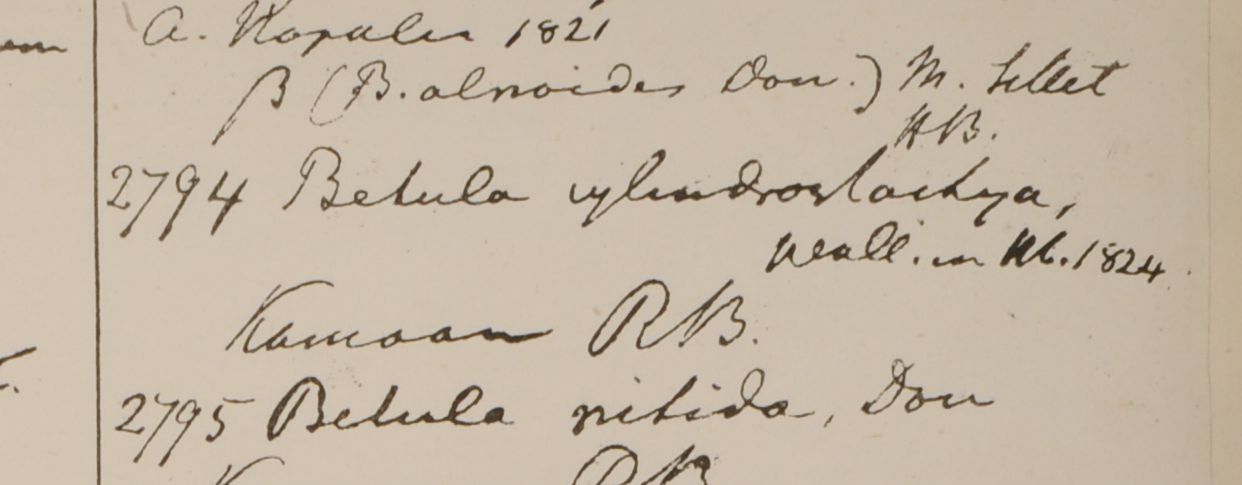 a. Napalia 1821
β (B. alnoides Don.) M. Sillet
HB.
2794 Betula cylindrostachya,
Wall. in 1824
Kamoan RB.
2795 Betula nitida, Don
RB